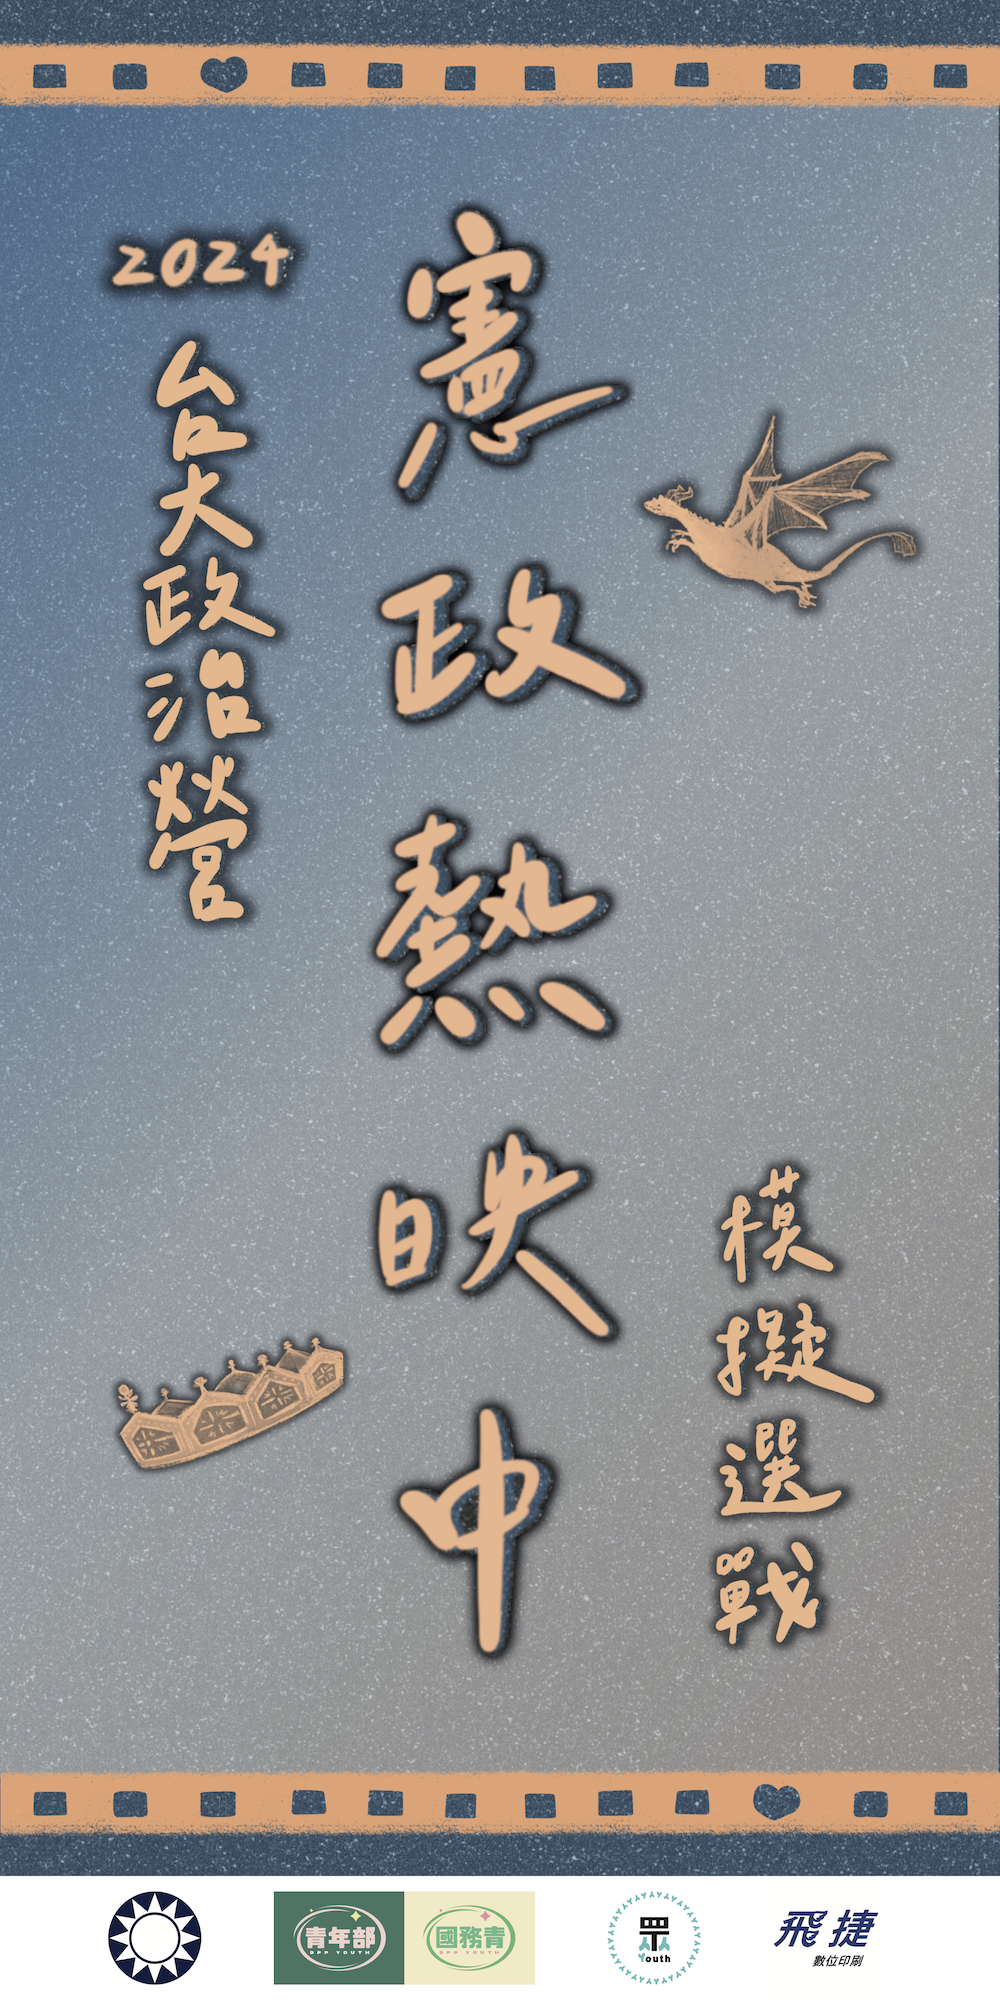 2024
台大政治營
憲政熱映中
模擬選戰
青年部
DPP YOUTH
國務青
DPP YOUTH
眾
Youth
飛捷
數位印刷